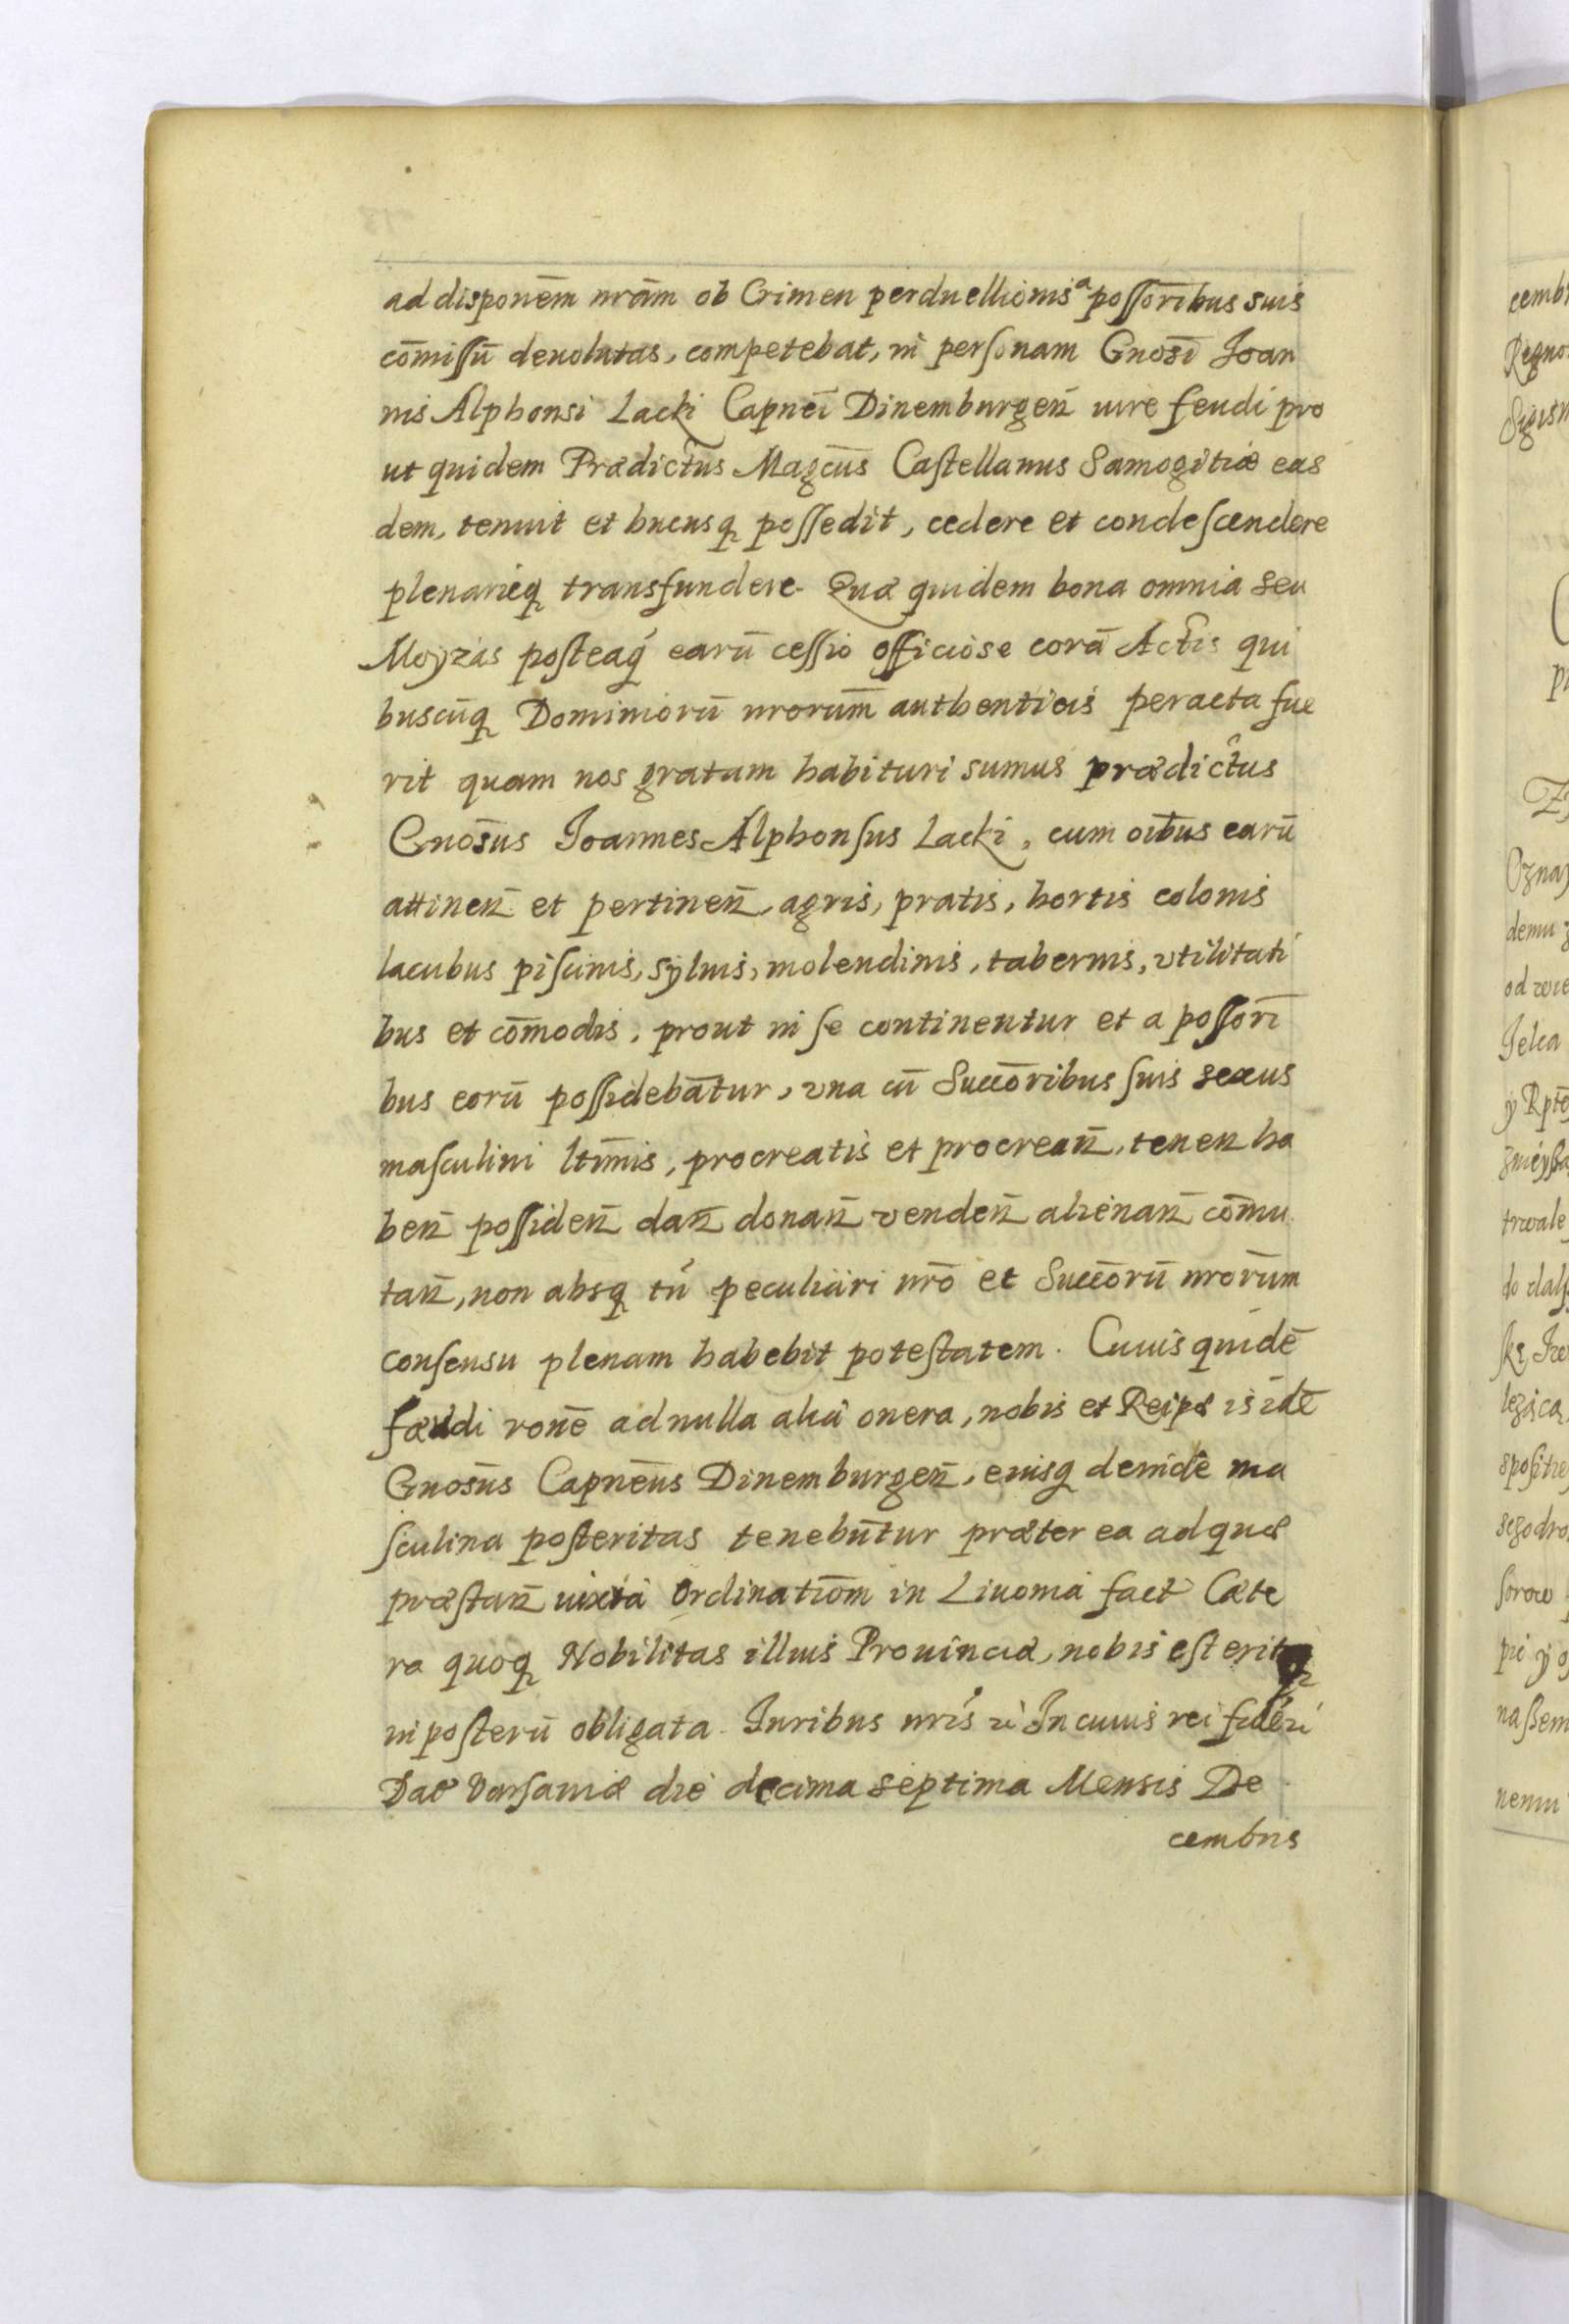 ad disponēm nrām ob Crimen perduellionis a possoribus suis
cōmissū deuolutas, competebat, in personam Gnosī Joan
nis Alphonsi Lacki Capneī Dinemburgen̄ iure feudi pro
ut quidem Prædictus Magcūs Castellanus Samogitiæ eas
dem, tenuit et hucusq possedit, cedere et condescendere
plenarieq transfundere. Quæ quidem bona omnia seu
Moyzas posteaq́ earū cessio officiose corā Actis qui
buscūq Dominiorū nrorum̄ authenticis peracta fue
rit quam nos gratam habituri sumus prædictus
Gnosūs Joannes Alphonsus Lacki, cum oībus earū
attinen̄ et pertinen̄, agris, pratis, hortis colonis
lacubus piscinis, syluis, molendinis, tabernis, vtilitati
bus et cōmodis, prout in se continentur et a possorī
bus eorū possidebāntur, vna cū Succōribus suis sexus
masculini ltīmis, procreatis et procrean̄, tenen̄ ha
ben̄ possiden̄ dan̄ donan̄ venden̄ alienan̄ cōmu
tan̄, non absq tn̄ peculiari nrō et Succōrū nrorūm
consensu plenam habebit potestatem. Cuius quidē
fæudi ronē ad nulla alia onera, nobis et Reipæ is idē
Gnosūs Capnēus Dinemburgen̄, eiusq deinde ma
sculina posteritas tenebūntur præter ea ad quæ
præstan̄ iuxta Ordinatiōm in Liuonia fact Cæte
ra quoq Nobilitas illius Prouinciæ, nobis est erit
in posterū obligata. Juribus nrīs Jn cuius rei fidē
Dat Varsauiæ die decima septima Mensis De
cembris
cemb
Regno
Sigism
demu
Jelca
trwale